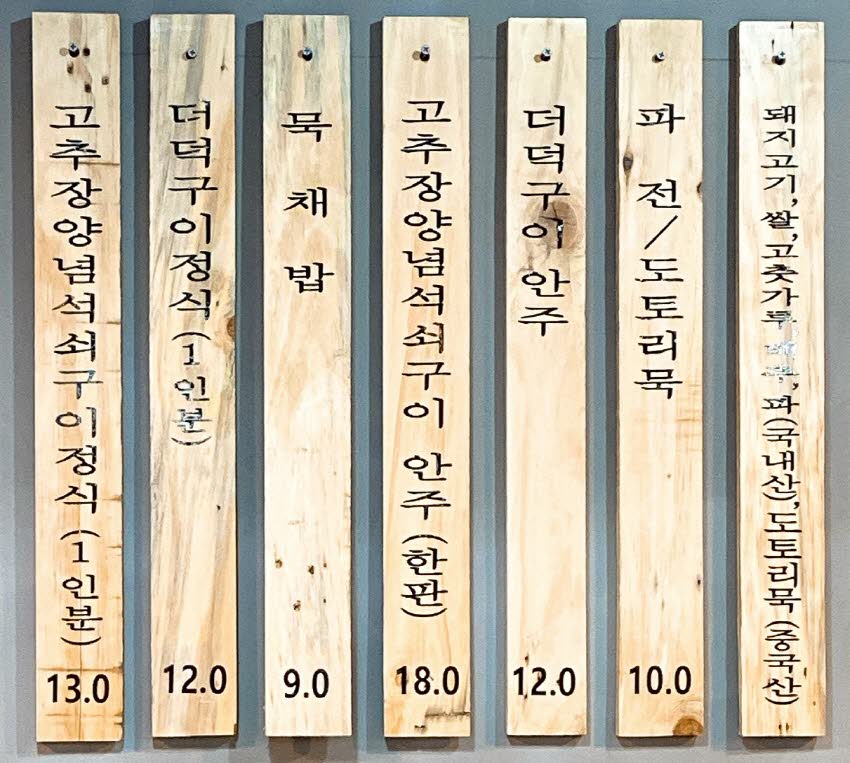 고추장양념석쇠구이정식 (1인분)
13.0
더덕구이정식 (1인분)
12.0
묵채밥
9.0
고추장양념석쇠구이 안주 (한판)
18.0
더덕구이 안주
12.0
파전/도토리묵
10.0
돼지고기, 쌀, 고춧가루, 파(국내산), 도토리묵 (중국산)